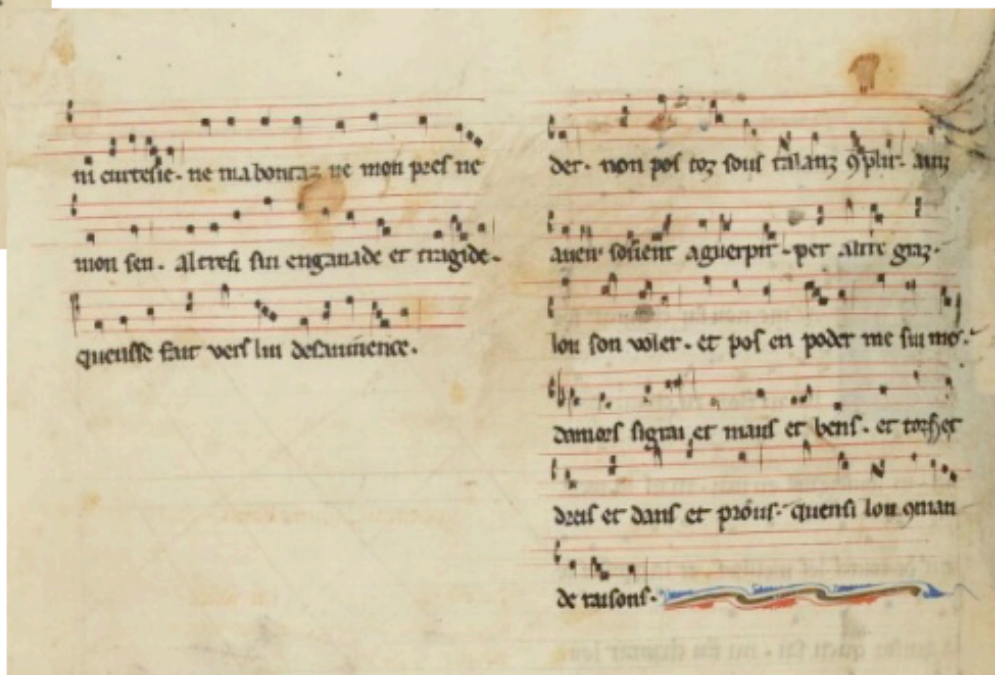 ni cortesie · ne ma bontaz ne mon pres ne
mon sen · altresi sui enganade et tragide ·
queusse fait vers lui desavinence ·
der · non pos toz sous talanz 9plir · anz
aven sovent aguerpir · per altre graz ·
lou son voler · et pos en poder me sui mes ·
damors sigrai et maus et bens · et torz et
dreis et dans et prous · quensi lou 9man
de raisons ·